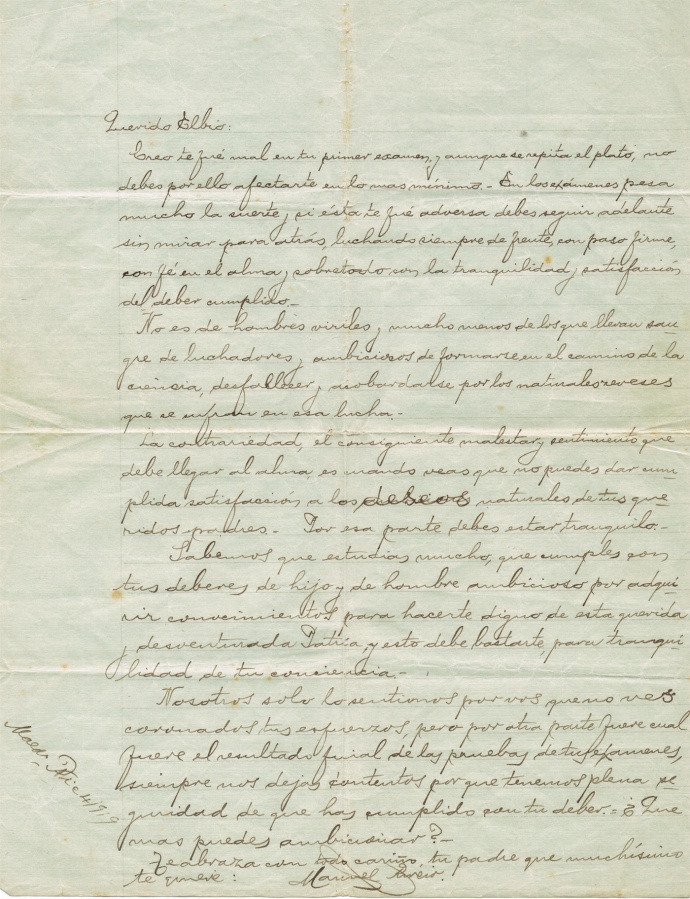 Querido Elbio:
Creo te fué mal en tu primer examen, y aunque se repita el plato, no
debes por ello afectarte en lo mas mínimo.- En los exámenes pesa
mucho la suerte y si ésta te fué adversa debes seguir adelante
sin mirar para atrás, luchando siempre de frente, con paso firme,
con fé en el alma y sobretodo con la tranquilidad y satisfacción
del deber cumplido.-
No es de hombres viriles y mucho menos de los que llevan san-
gre de luchadores y ambiciosos de formarse en el camino de la
ciéncia, desfallecer y acobardarse por los naturales reveses
que se sufran en esa lucha.-
La contrariedad, el consiguiente malestar y sentimiento que
debe llegar al alma, es cuando veas que no puedes dar cum-
plida satisfacción a los deseos naturales de tus que-
ridos padres.- Por esa parte debes estar tranquilo.-
Sabemos que estudias mucho, que cumples con
tus deberes de hijo y de hombre ambicioso por adqui-
rir conocimientos para hacerte digno de esta querida
y desventurada Patria, y esto debe bastarte para tranqui-
lidad de tu conciencia.-
Nosotros solo lo sentimos por vos que no ves
coronados tus esfuerzos, pero por otra parte fuere cual
fuere el resultado final de las pruebas de tus exámenes,
siempre nos dejas contentos porque tenemos plena se-
guridad de que has cumplido con tu deber.- ¿Que
mas puedes ambicionar?-
Te abraza con todo cariño tu padre que muchísimo
te quiere: Manuel
Dic